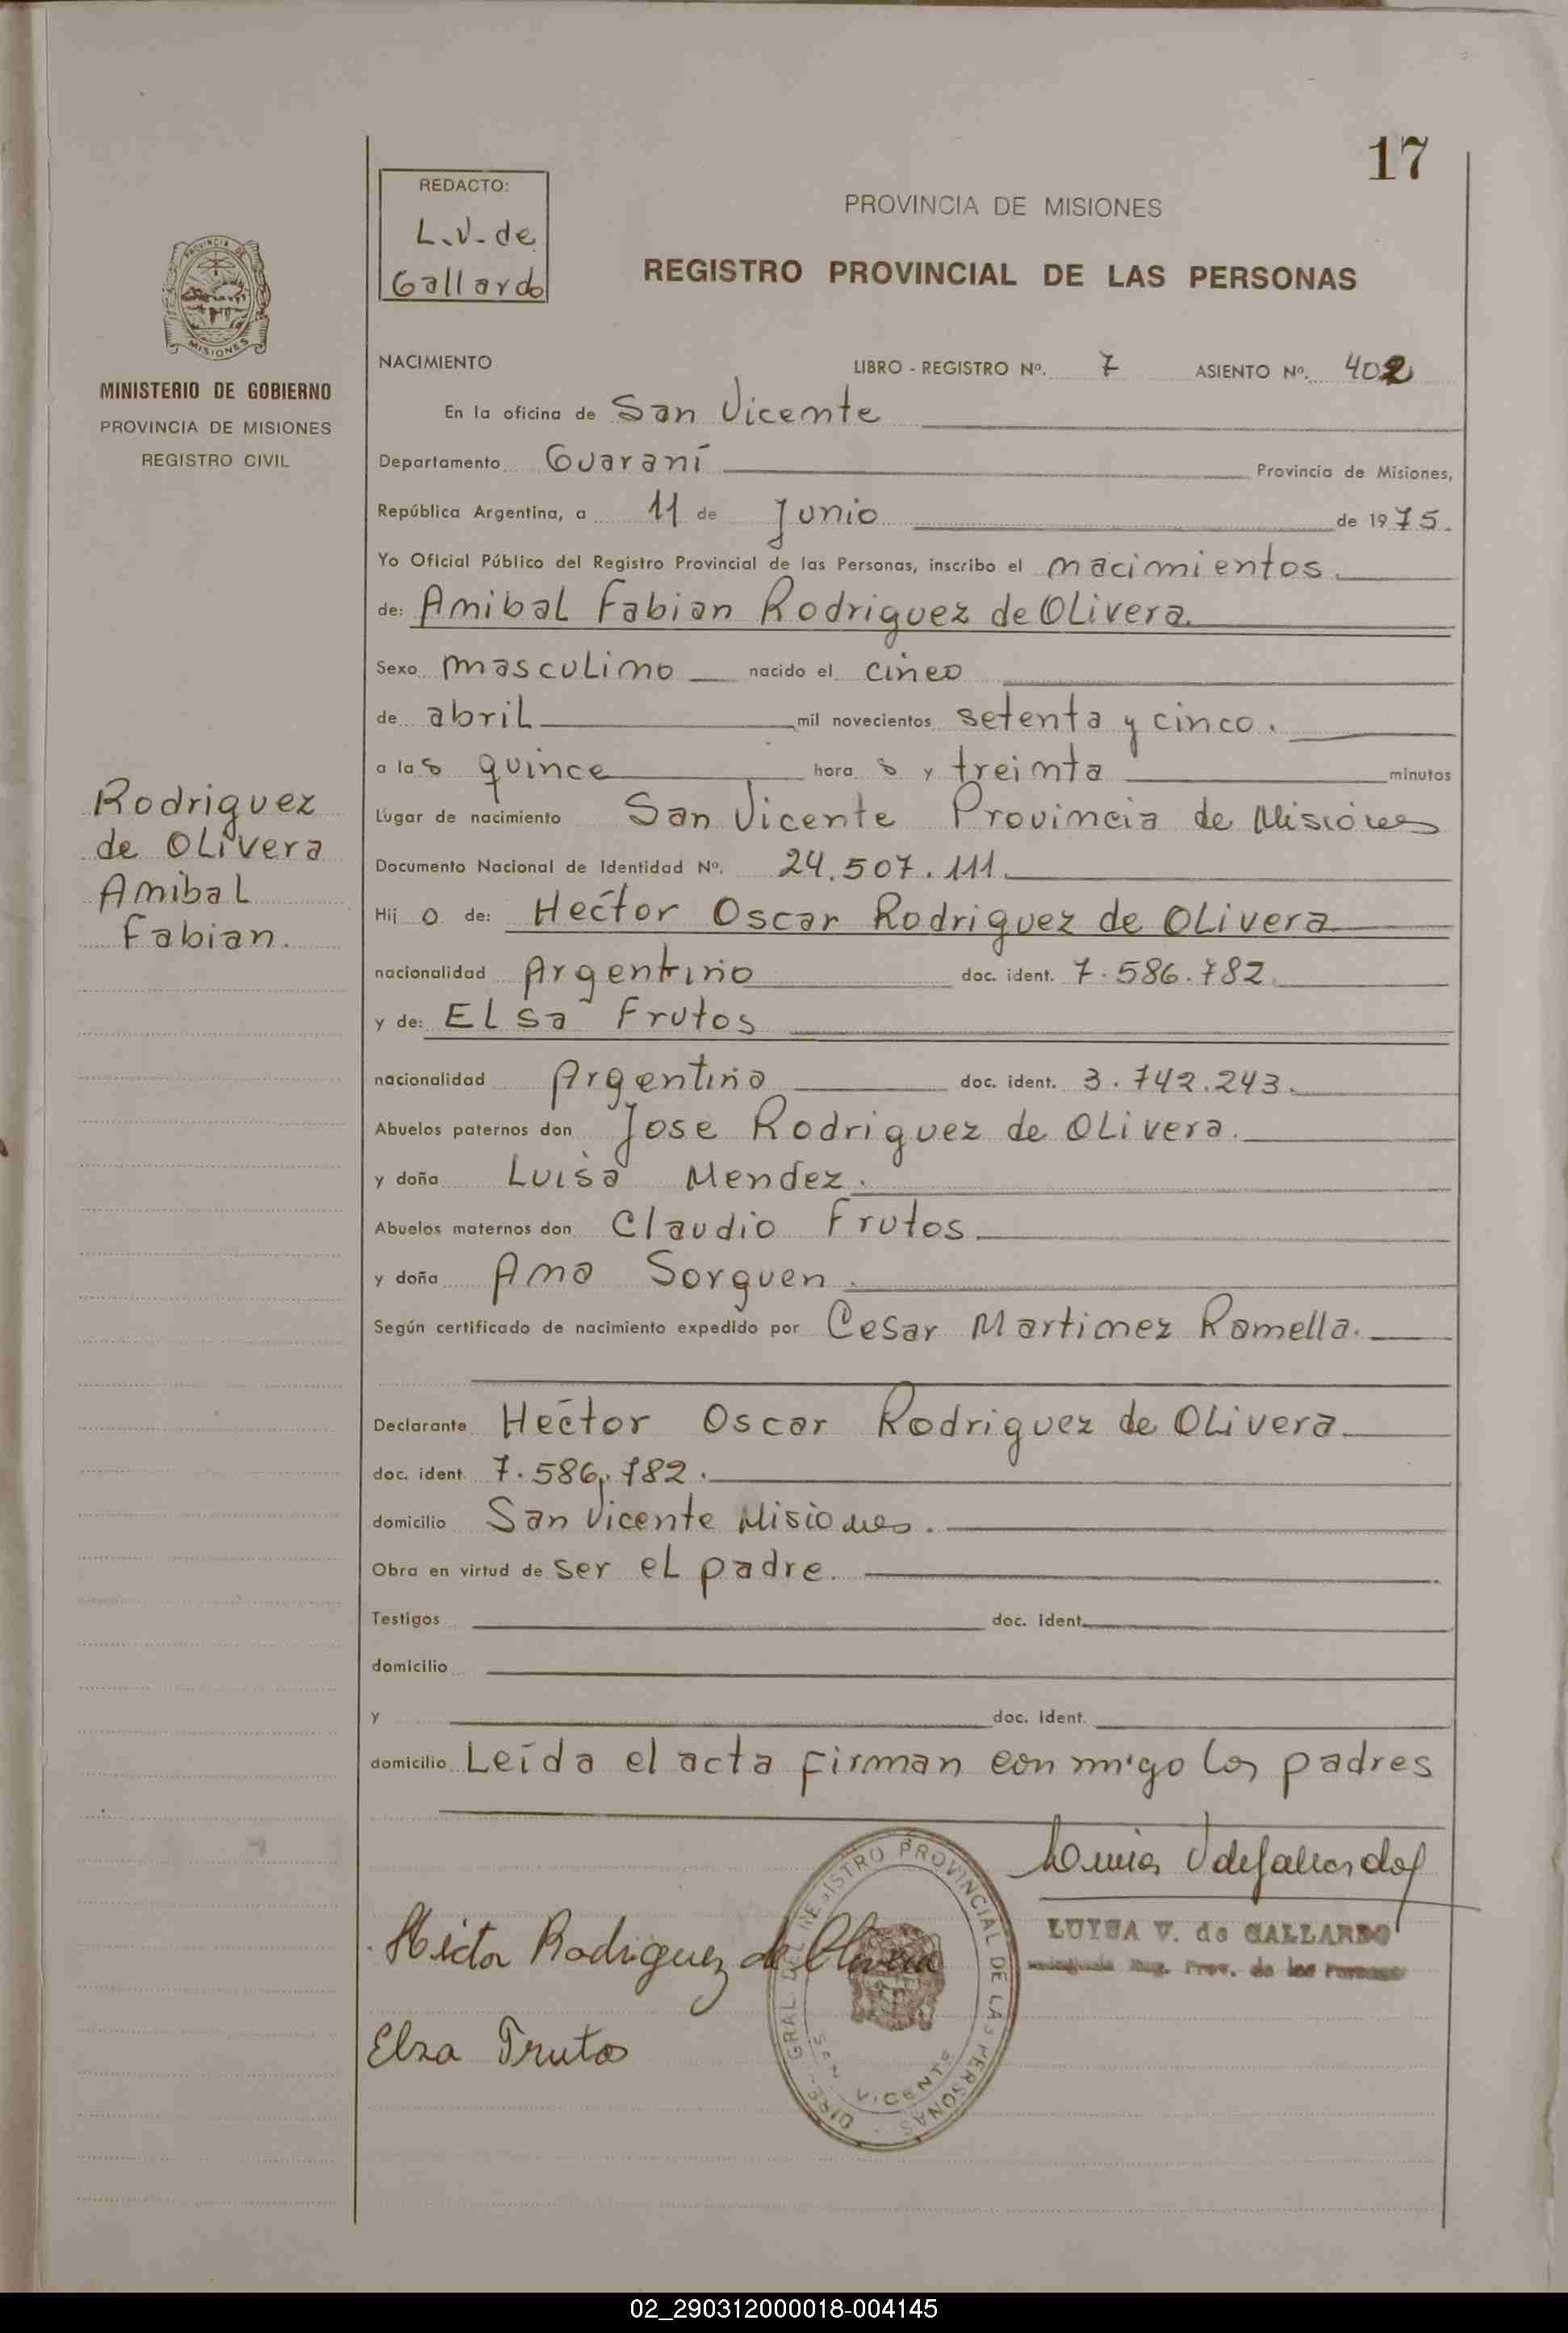 17
REDACTO:
L.V. de
Gallardo
PROVINCIA DE MISIONES
REGISTRO PROVINCIAL DE LAS PERSONAS
PROVINCIA DE
MISIONES
MINISTERIO DE GOBIERNO
PROVINCIA DE MISIONES
REGISTRO CIVIL
NACIMIENTO LIBRO - REGISTRO Nº. 7 ASIENTO Nº. 402
En la oficina de San Vicente
Departamento Guaraní Provincia de Misiones,
República Argentina, a 11 de Junio de 1975.
Yo Oficial Público del Registro Provincial de las Personas, inscribo el nacimientos
de: Anibal Fabian Rodriguez de Olivera.
Sexo masculino nacido el cinco
de abril mil novecientos setenta y cinco.
a las quince horas y treinta minutos
Lugar de nacimiento San Vicente Provincia de Misiones
Documento Nacional de Identidad Nº. 24.507.111.
Hijo de: Hector Oscar Rodriguez de Olivera
nacionalidad Argentino doc. ident. 7.586.782.
y de: Elsa Frutos
nacionalidad Argentina doc. ident. 3.742.243.
Abuelos paternos don Jose Rodriguez de Olivera.
y doña Luisa Mendez.
Abuelos maternos don Claudio Frutos
y doña Ana Sorguen.
Según certificado de nacimiento expedido por Cesar Martinez Ramella.
Declarante Hector Oscar Rodriguez de Olivera.
doc. ident. 7.586.782.
domicilio San Vicente Misiones.
Obra en virtud de ser el padre.
Testigos doc. ident.
domicilio
y doc. ident.
domicilio Leída el acta firman conmigo los padres
Rodriguez
de Olivera
Anibal
Fabian.
Luisa V de Gallardo
LUISA V. de GALLARDO
Reg. Prov. de las Personas
Hector Rodriguez de Olivera
Elsa Frutos
DIRE. GRAL. DEL REGISTRO PROVINCIAL DE LAS PERSONAS
SAN VICENTE
02_290312000018-004145